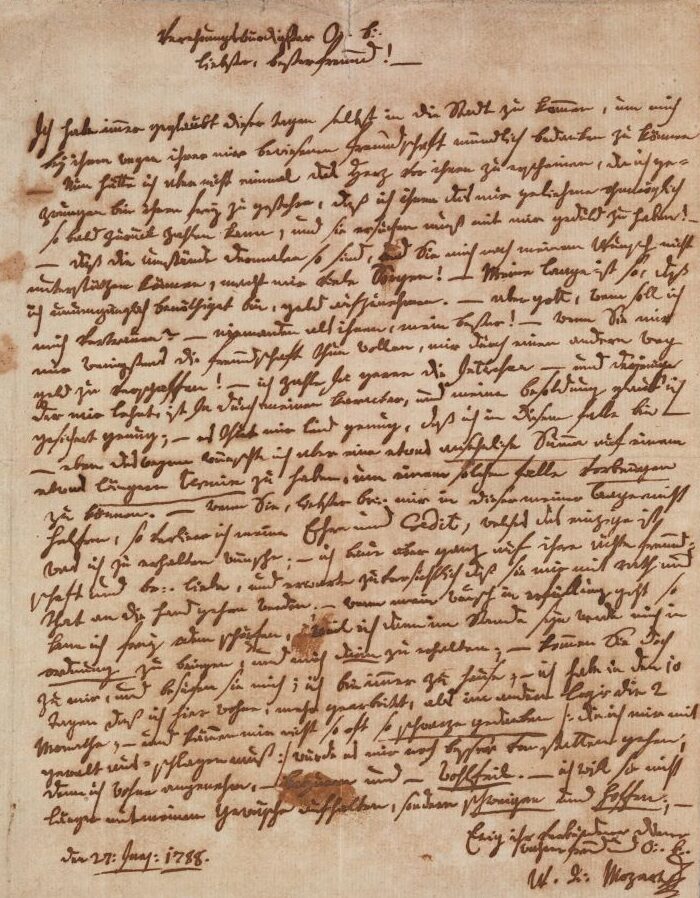 Verehrungswürdigster O. b:
liebster, bester freund! —
Ich habe immer geglaubt dieser tagen selbst in die Stadt zu kommen, um mich
bey ihnen wegen ihrer mir bewiesenen freundschaft mündlich bedanken zu können
— Nun hätte ich aber nicht einmal das Herz vor ihnen zu erscheinen, da ich ge-
zwungen bin ihnen frey zu gestehen, daß ich ihnen das mir geliehene ohnmöglich
so bald zurück zahlen kann, und sie ersuchen muß mit mir geduld zu haben!
— daß die umstände dermalen so sind, und Sie mich nach meinem Wunsch nicht
unterstützen können, macht mir viele Sorgen! — Meine laage ist so, daß
ich unumgänglich benöthiget bin, geld aufzunehmen. — aber gott, wem soll ich
mich vertrauen? — niemanden als ihnen, mein bester! — wenn Sie mir
nur wenigstens die freundschaft thun wollen, mir durch einen andern weg
geld zu verschaffen! — ich zahle ja gerne die Interessen — und derjenige
der mir lehnt, ist ja durch meinen karakter, und meine besoldung glaub ich
gesichert genug; — es thut mir leid genug, daß ich in diesem falle bin —
— eben deswegen wünschte ich aber eine etwas ansehnliche Summa auf einen
etwas längern termin zu haben, um einem solchen falle vorbeugen
zu können. — wenn Sie, liebster br: mir in dieser meiner laage nicht
helfen, so verliere ich meine Ehre und Credit, welches das einzige ist
was ich zu erhalten wünsche; — ich baue aber ganz auf ihre ächte freund-
schaft und br: liebe, und erwarte zuversichtlich daß sie mir mit rath und
that an die hand gehen werden. — wenn mein wunsch in erfüllung geht so
kann ich frey odem schöpfen, weil ich dann im Stande seyn werde mich in
ordnung zu bringen, und mich darin zu erhalten; — kommen Sie doch
zu mir, und besuchen sie mich; ich bin immer zu hause; — ich habe in den 10
tagen daß ich hier wohne, mehr gearbeitet, als im andern logis die 2
Monathe, — und kämen mir nicht so oft so schwarze gedanken |: die ich mir mit
gewalt aus-schlagen muß :| würde es mir noch besser von statten gehen,
denn ich wohne angenehm, — bequem und — wohlfeil. — ich will sie nicht
länger mit meinem Gewäsche aufhalten, sondern schweigen und hoffen; —
Ewig ihr verbundner diener
wahrer freund und O. b.
W. A: Mozart
den 27: Juny: 1788.